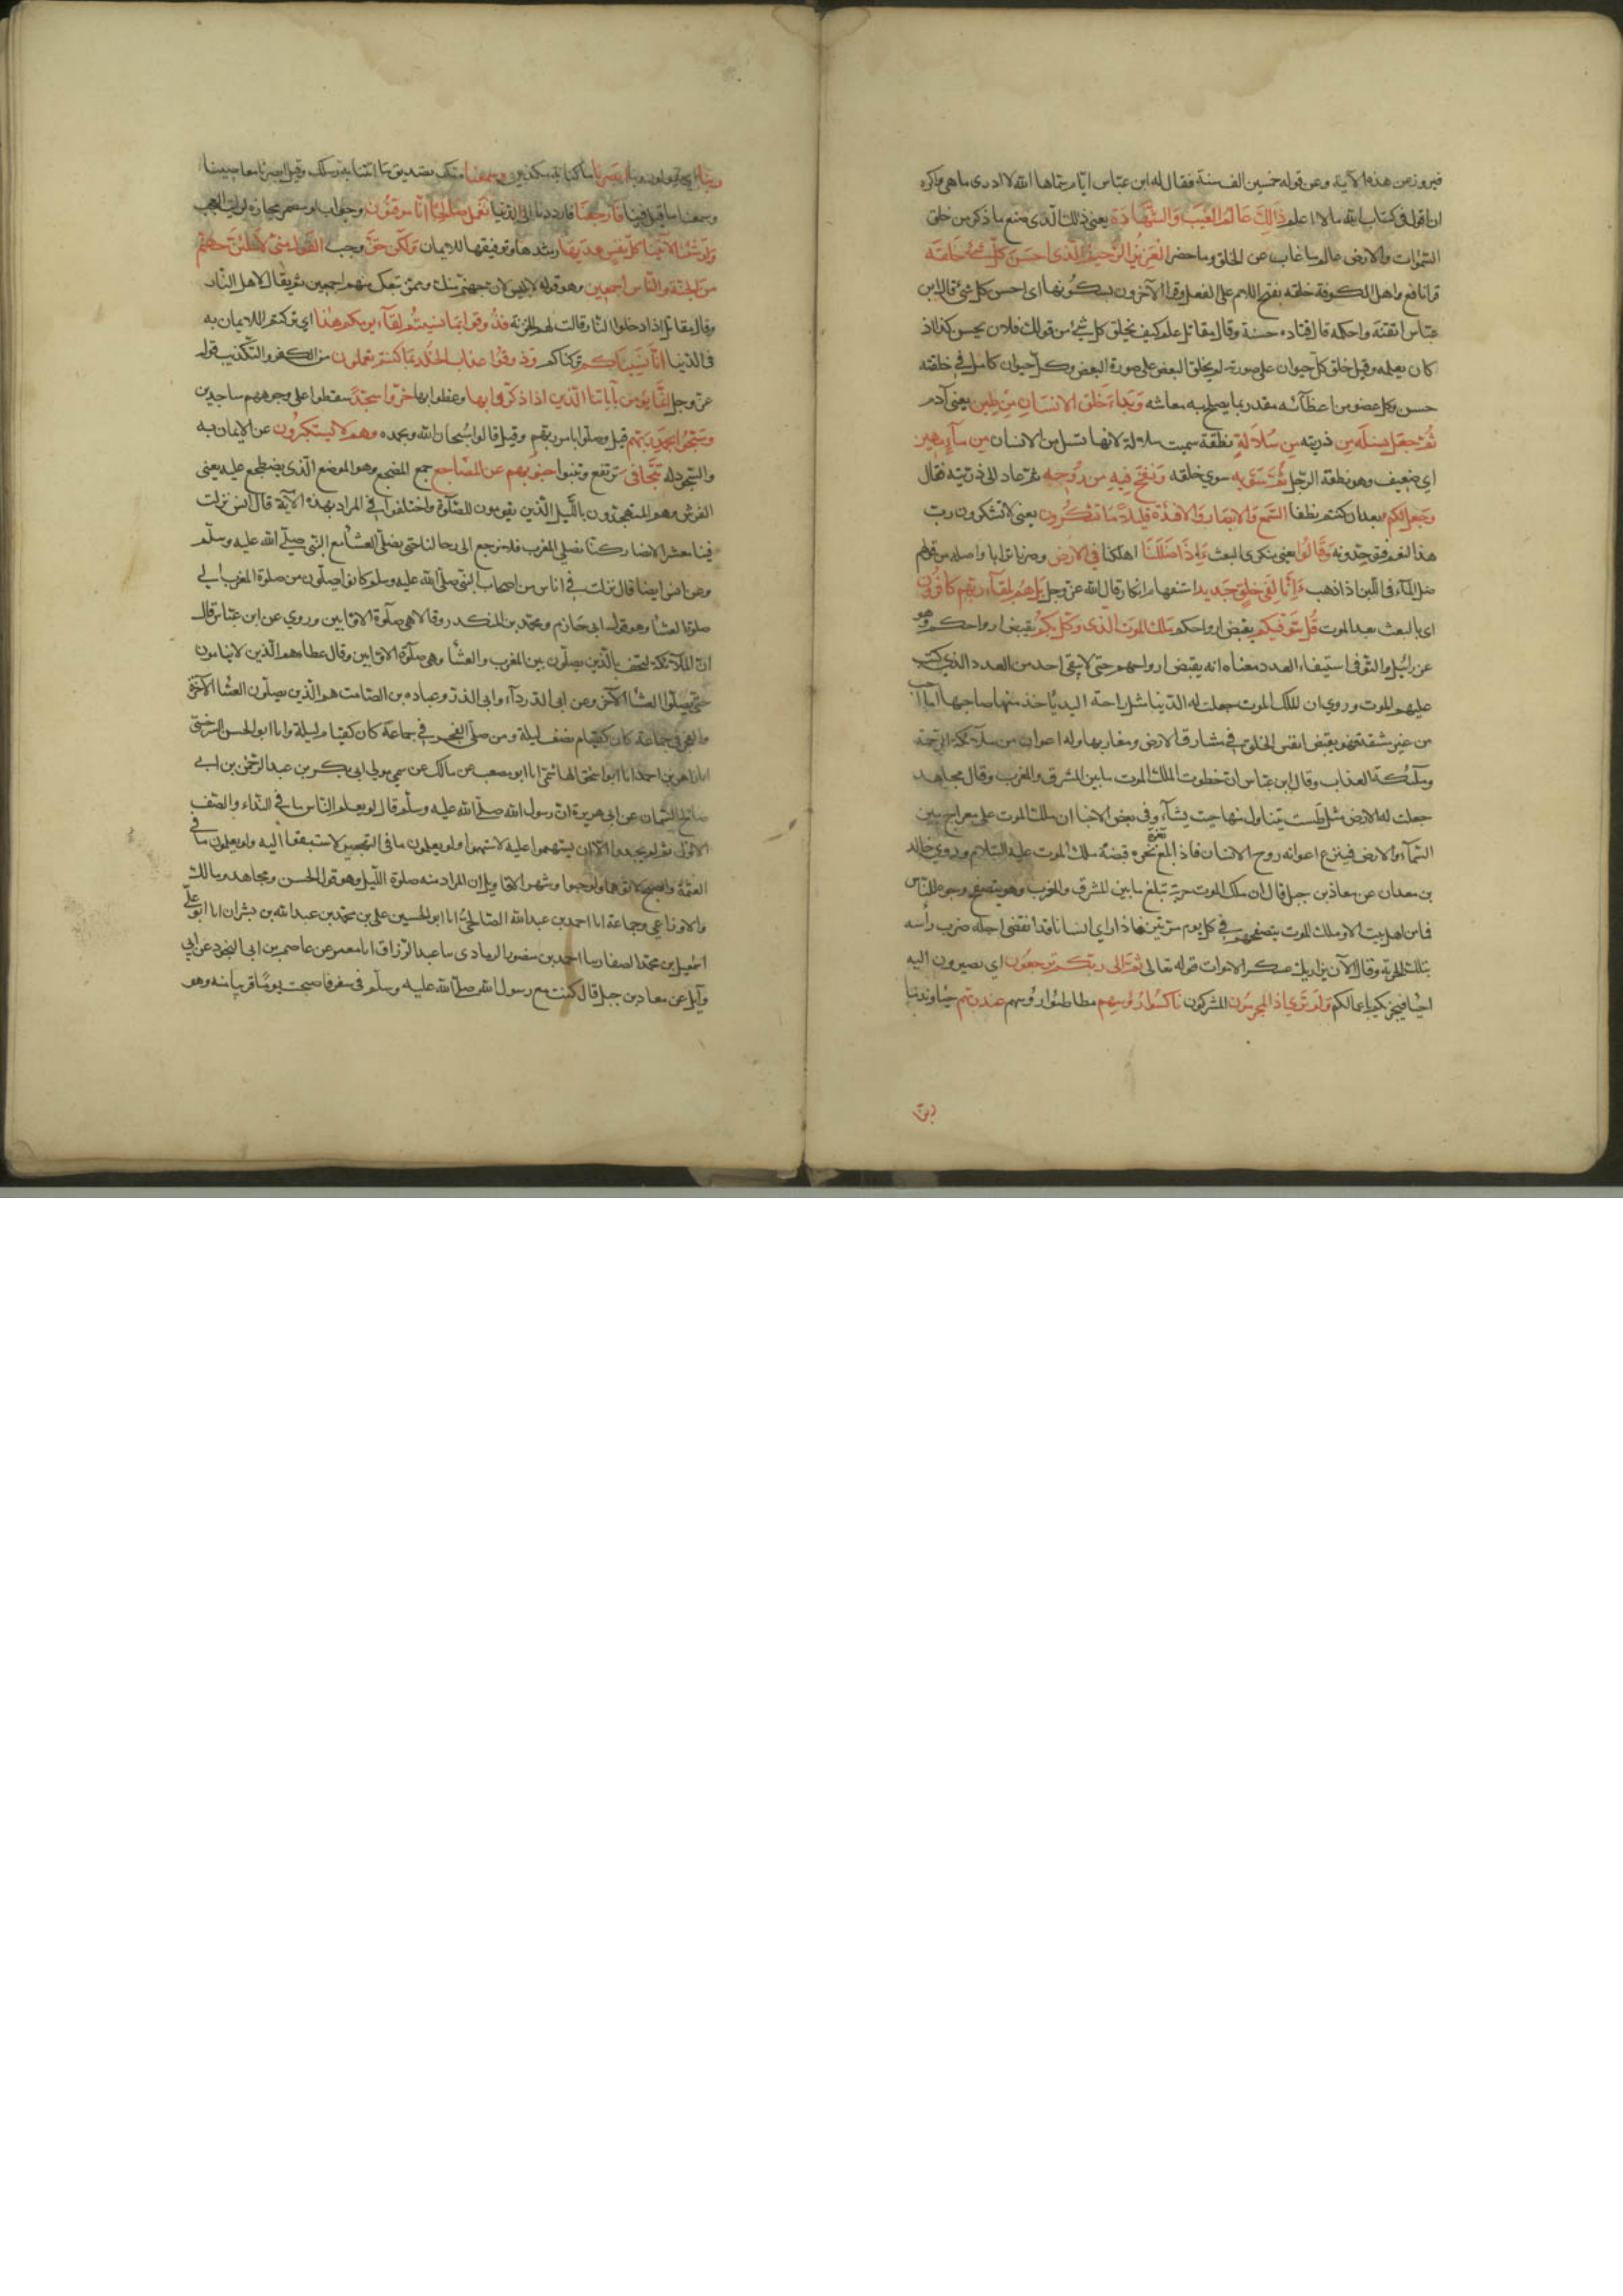 فيروز عن هذه الآية وعن قوله خمسين الف سنة فقال له ابن عباس ايام سماها الله لا ادري ما هي واكره
ان اقول في كتاب الله ما لا اعلم ذَالِكَ عَالِمُ الغَيبِ وَالشَّهَادَة يعني ذلك الذي صنع ما ذكر من خلق
السموات والارض عالم ما غاب عن الخلق وما حضر العَزِيزُ الرَّحِيمُ الَّذي احسَنَ كلَّ شَيْءٍ خَلَقَه
قرا نافع واهل الكوفة خلقه بفتح اللام على الفعل وقرا الآخرون بسكونها اي احسن كل شئ قال ابن
عباس اتقنه واحكمه قال قتادة حسنه وقال مقاتل علم كيف يخلق كل شئ من قولك فلان يحسن كذا اذ
كان يعلمه وقيل خلق كل حيوان على صورة لم يخلق البعض على صورة البعض وكل حيوان كامل في خلقته
حسن وكل عضو من اعضآئه مقدر بما يصلح به معاشه وَبَدَاءَ خَلقَ الانسَانِ مِن طِينٍ يعني آدم
ثُمَّ جعَلَ نسلَه مِن ذريته مِن سُلَالَةٍ نطفة سميت سلالة لانها تسل من الانسان مِن مآءٍ مهِين
اي ضعيف وهو نطقة الرجل ثُمَّ سَوّيه سوي خلقه وَنفَخَ فِيهِ مِن رُوحِه ثم عاد الى ذريته فقال
وَجعَل لكم بعد ان كنتم نطفا السَّمعَ وَالابصَارَ وَالافئدَة قليلًا مَا تشكُرُون يعني لا تشكرون رب
هذا النعم فتوحدونه وَقَالُوا يعني منكري البعث ءَاِذَا ضَلَلنَا اهلكنا فِي الارض وصرنا ترابا واصله من قولهم
ضل المآء في اللبن اذا ذهب ءَاِنَّا لَفِي خَلقٍ جَدِيد استفهام انكار قال الله عز وجل بَل هُم بِلِقَآءِ ربِّهِم كافُرون
اي بالبعث بعد الموت قُل يَتَوفّيكم يقبض ارواحكم ملك الموت الَّذي وُكّلَ بكُم يقبض ارواحكم وهو
عزرائيل والتوفي استيفاء العدد معناه انه يقبض ارواحهم حتى لا يبقى احد من العدد الذي كتب
عليهم الموت وروي ان ملك الموت جعلت له الدنيا مثل راحة اليد يأخذ منها صاحبها ما احب
من غير مشقة فهو يقبض انفس الخلق في مشارق الارض ومغاربها وله اعوان من ملآئكة الرحمة
وملآئكة العذاب وقال ابن عباس ان خطوة الملك الموت ما بين المشرق والمغرب وقال مجاهد
جعلت له الارض مثل طست يتناول منها حيث يشآء وفي بعض الاخبار ان ملك الموت على معراج بين
السمآء والارض فينزع اعوانه روح الانسان فاذا بلغ ثغرة نحره قبضه ملك الموت عليه السلام وروي خالد
بن معدان عن معاذ بن جبل قال ان ملك الموت حربة تبلغ ما بين المشرق والمغرب وهو يتصفح وجوه الناس
فما من اهل بيت الا وملك الموت يتصفحهم في كل يوم مرتين فاذا راي انسانا قد انقضى اجله ضرب رأسه
بتلك الحربة وقال الآن يزار بك عسكر الاموات قوله تعالى ثُمَّ الى ربّكم تُرجعُون اي تصيرون اليه
احياء فيجزيكم باعمالكم وَلَو تَرَي اذ المجرمُون المشركون نَاكسُوا رؤسِهِم مطاطئوا رؤسهم عند ربِّهم حياء وندما
ربنا
ربنا اي يقولون ربنا ابصَرنا ما كنا به مكذبين وسمعنا منك تصديق ما اتتنا به رسلك وقيل ابصرنا معاصينا
وسمعنا ما قيل فينا فارجعنَا فارددنا الى الدنيا نعمَل صَالِحًا اِنّا موقنُون وجواب لو مضمر مجازه لرايت العجب
وَلَو شئنَا لآتينَا كلَّ نفسٍ هديها رشدها وتوفيقها للايمان وَلكِن حَقَّ وجب القَولُ مِنّي لَاملئنَّ جهنّم
مِن الجنّة والنّاس اجمعِين وهو قوله لابليس لاملئن جهنم منك وممن تبعك منهم اجمعين ثم يقال لاهل النار
وقال مقاتل اذا دخلوا النار قالت لهم الخزنة فذُوقوا بمَا نسيتُم لقآء يومكم هٰذا اي تركتم الايمان به
في الدنيا اِنّا نسِينَاكم تركناكم وَذوقُوا عذابَ الخُلد بمَا كنتم تعملون من الكفر والتكذيب قوله
عز وجل اِنّما يؤمِن بآيَاتنا الّذين اذا ذكّروا بها وعظوا بها خَرّوا سجّدًا سقطوا على وجوههم ساجدين
وسَبّحُوا بحمدِ ربّهم قيل وصلوا بامر ربهم وقيل قالوا سبحان الله وبحمده وهم لا يستكبرُون عن الايمان به
والسجود له تتَجَافى ترتفع وتنبوا جنوبُهم عن المضَاجِع جمع المضجع وهو الموضع الذي يضطجع عليه يعني
الفرش وهم المتهجدون بالليل الذين يقومون للصلوة واختلفوا في المراد بهذه الآية قال انس نزلت
فينا معشر الانصار كنا نصلي المغرب فلا نرجع الى رحالنا حتى نصلي العشآء مع النبي صلى الله عليه وسلم
وعن انس ايضا قال نزلت في اناس من اصحاب النبي صلى الله عليه وسلم كانوا يصلون من صلوة المغرب الى
صلوة العشآء وهو قول ابي حازم ومحمد بن المنكدر وقالا هي صلوة الاوابين وروي عن ابن عباس قال
ان الملآئكة لتحف بالذين يصلون بين المغرب والعشآء وهي صلوة الاوابين وقال عطاء هم الذين لا ينامون
حتى يصلوا العشآء الآخرة وعن ابي الدردآء وابي الذر وعباده بن الصامت هم الذين يصلون العشآء الآخرة
والفجر في جماعة كان كقيام نصف ليلة ومن صلى الفجر في جماعة كان كقيام ليلة وانا ابو الحسن السرخسي
انا زاهر بن احمد انا ابو اسحق الهاشمي انا ابو مصعب عن مالك عن سمي مولى ابي بكر بن عبد الرحمن عن ابي
صالح السمان عن ابي هريرة ان رسول الله صلى الله عليه وسلم قال لو يعلم الناس ما في النداء والصف
الاول ثم لم يجدوا الا ان يستهموا عليه لاستهموا ولو يعلمون ما في التهجير لاستبقوا اليه ولو يعلمون ما في
العتمة والصبح لاتوهما ولو حبوا واشهر الاقاويل ان المراد منه صلوة الليل وهو قول الحسن ومجاهد ومالك
والاوزاعي وجماعة انا احمد بن عبد الله الصالحي انا ابو الحسين علي بن محمد بن عبد الله بن بشران انا ابو علي
اسمعيل بن محمد الصفار سا احمد بن منصور الرمادي سا عبد الرزاق انا معمر عن عاصم بن ابي النجود عن ابي
وآيل عن معاذ بن جبل قال كنت مع رسول الله صلى الله عليه وسلم في سفر فاصبحت يومًا قريبا منه وهو